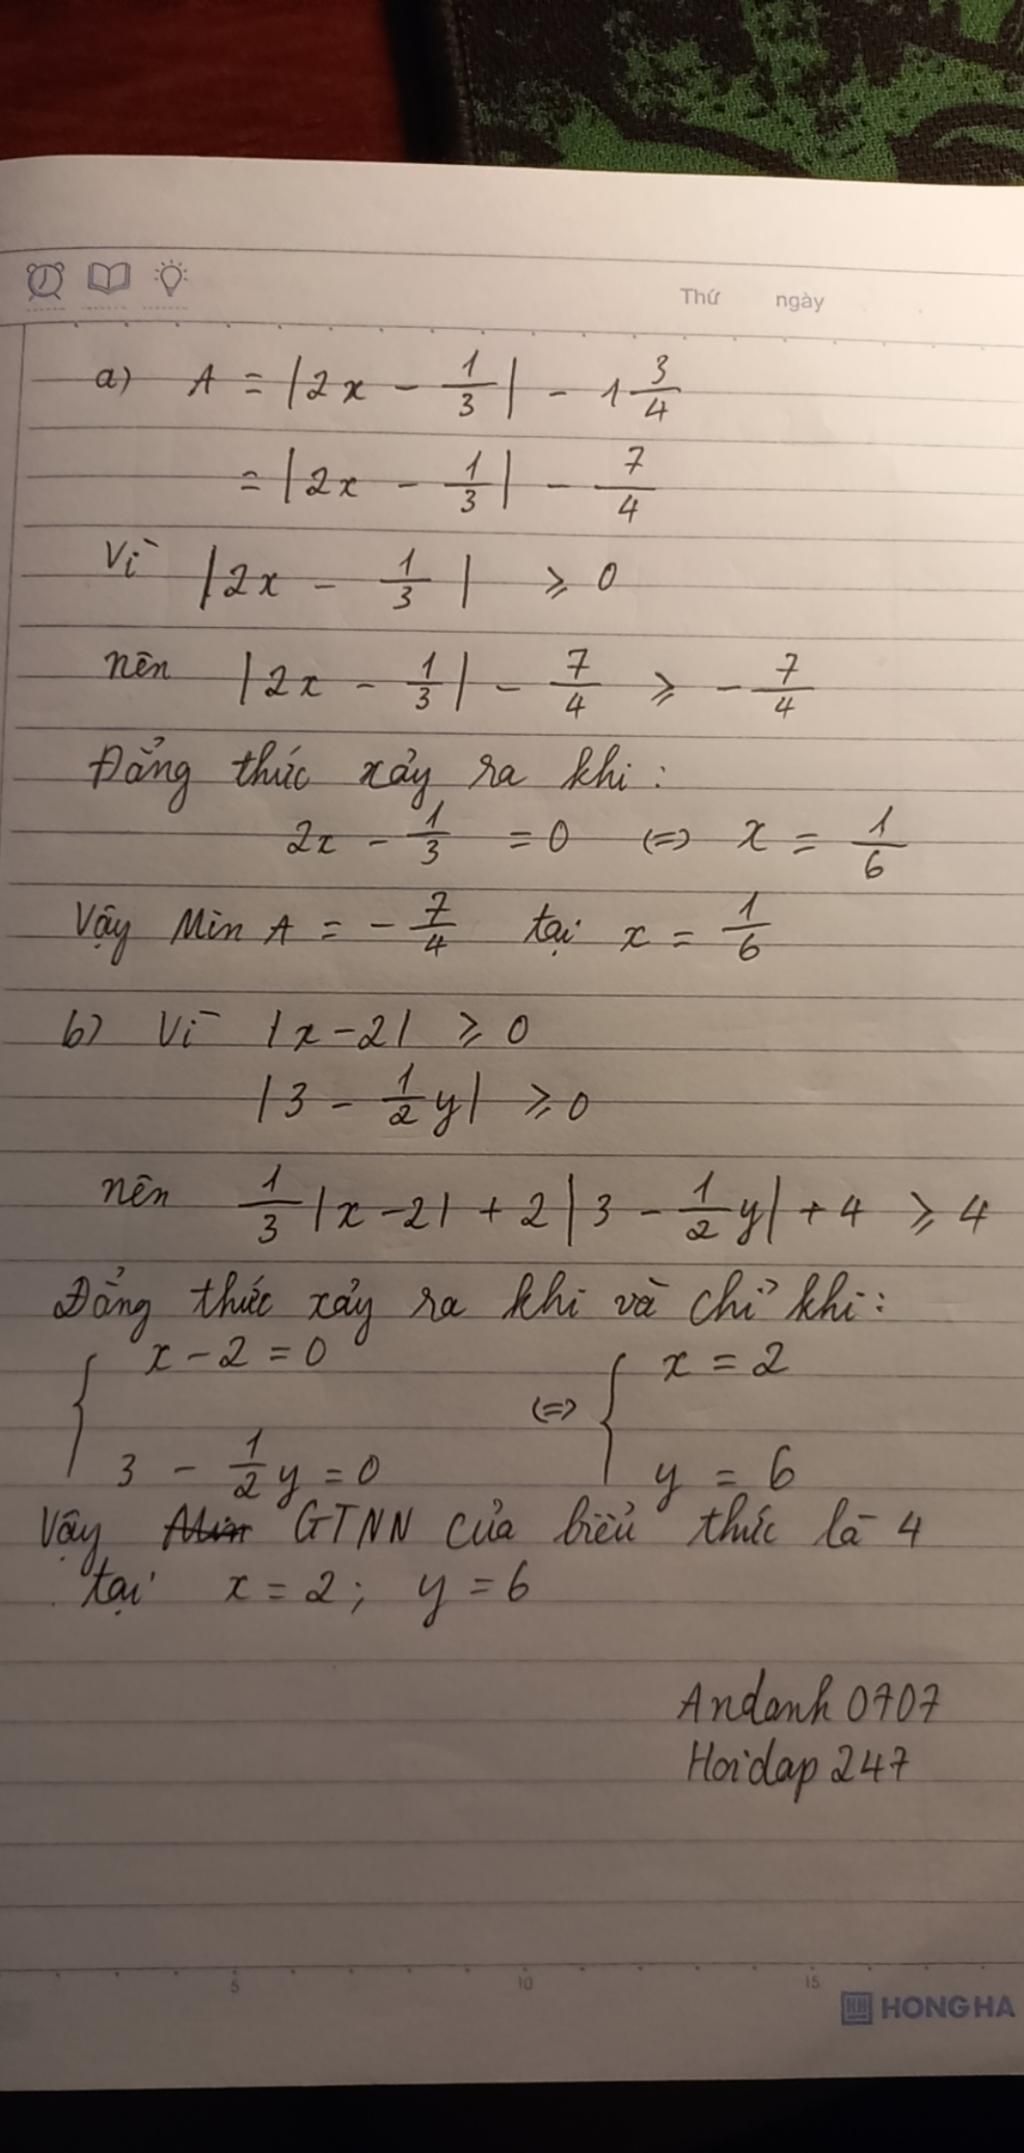 Thứ ngày
a) A = |2x - 1/3| - 1 3/4
= |2x - 1/3| - 7/4
Vì |2x - 1/3| ⩾ 0
nên |2x - 1/3| - 7/4 ⩾ - 7/4
Đẳng thức xảy ra khi:
2x - 1/3 = 0 (=) x = 1/6
Vậy Min A = - 7/4 tại x = 1/6
b) Vì |x - 2| ⩾ 0
|3 - 1/2 y| ⩾ 0
nên 1/3 |x - 2| + 2 |3 - 1/2 y| + 4 ⩾ 4
Đẳng thức xảy ra khi và chỉ khi:
{ x - 2 = 0 (=) { x = 2
3 - 1/2 y = 0 y = 6
Vậy Min GTNN của biểu thức là 4
tại x = 2; y = 6
Andanh 0707
Hoidap 247
5 10 15
HONG HA